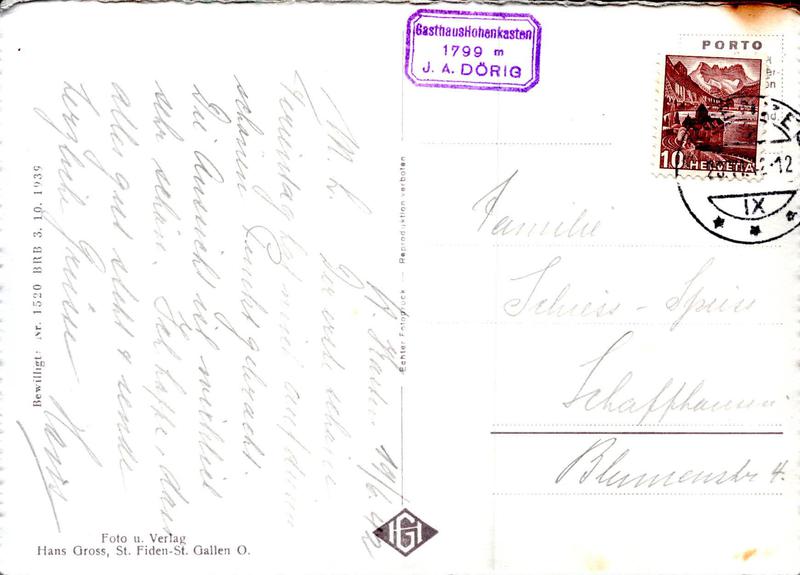 Gasthaus Hohenkasten
1799 m
J. A. DÖRIG
PORTO
HELVETIA
10
IX
H. Kasten 19/6. 42
M. L.
Der erste schöne
hat mich auf diesen
schönen gebracht.
Die Aussicht ist wirklich
sehr schön. Ich hoffe, dass
alles gut steht & sende
herzliche Grüsse
Hans
Familie
Schiess - Spiess
Schaffhausen
Blumenstr 4.
Bewilligt Nr. 1520 BRB 3. 10. 1939
Echter Fotodruck — Reproduktion verboten
Foto u. Verlag
Hans Gross, St. Fiden-St. Gallen O.